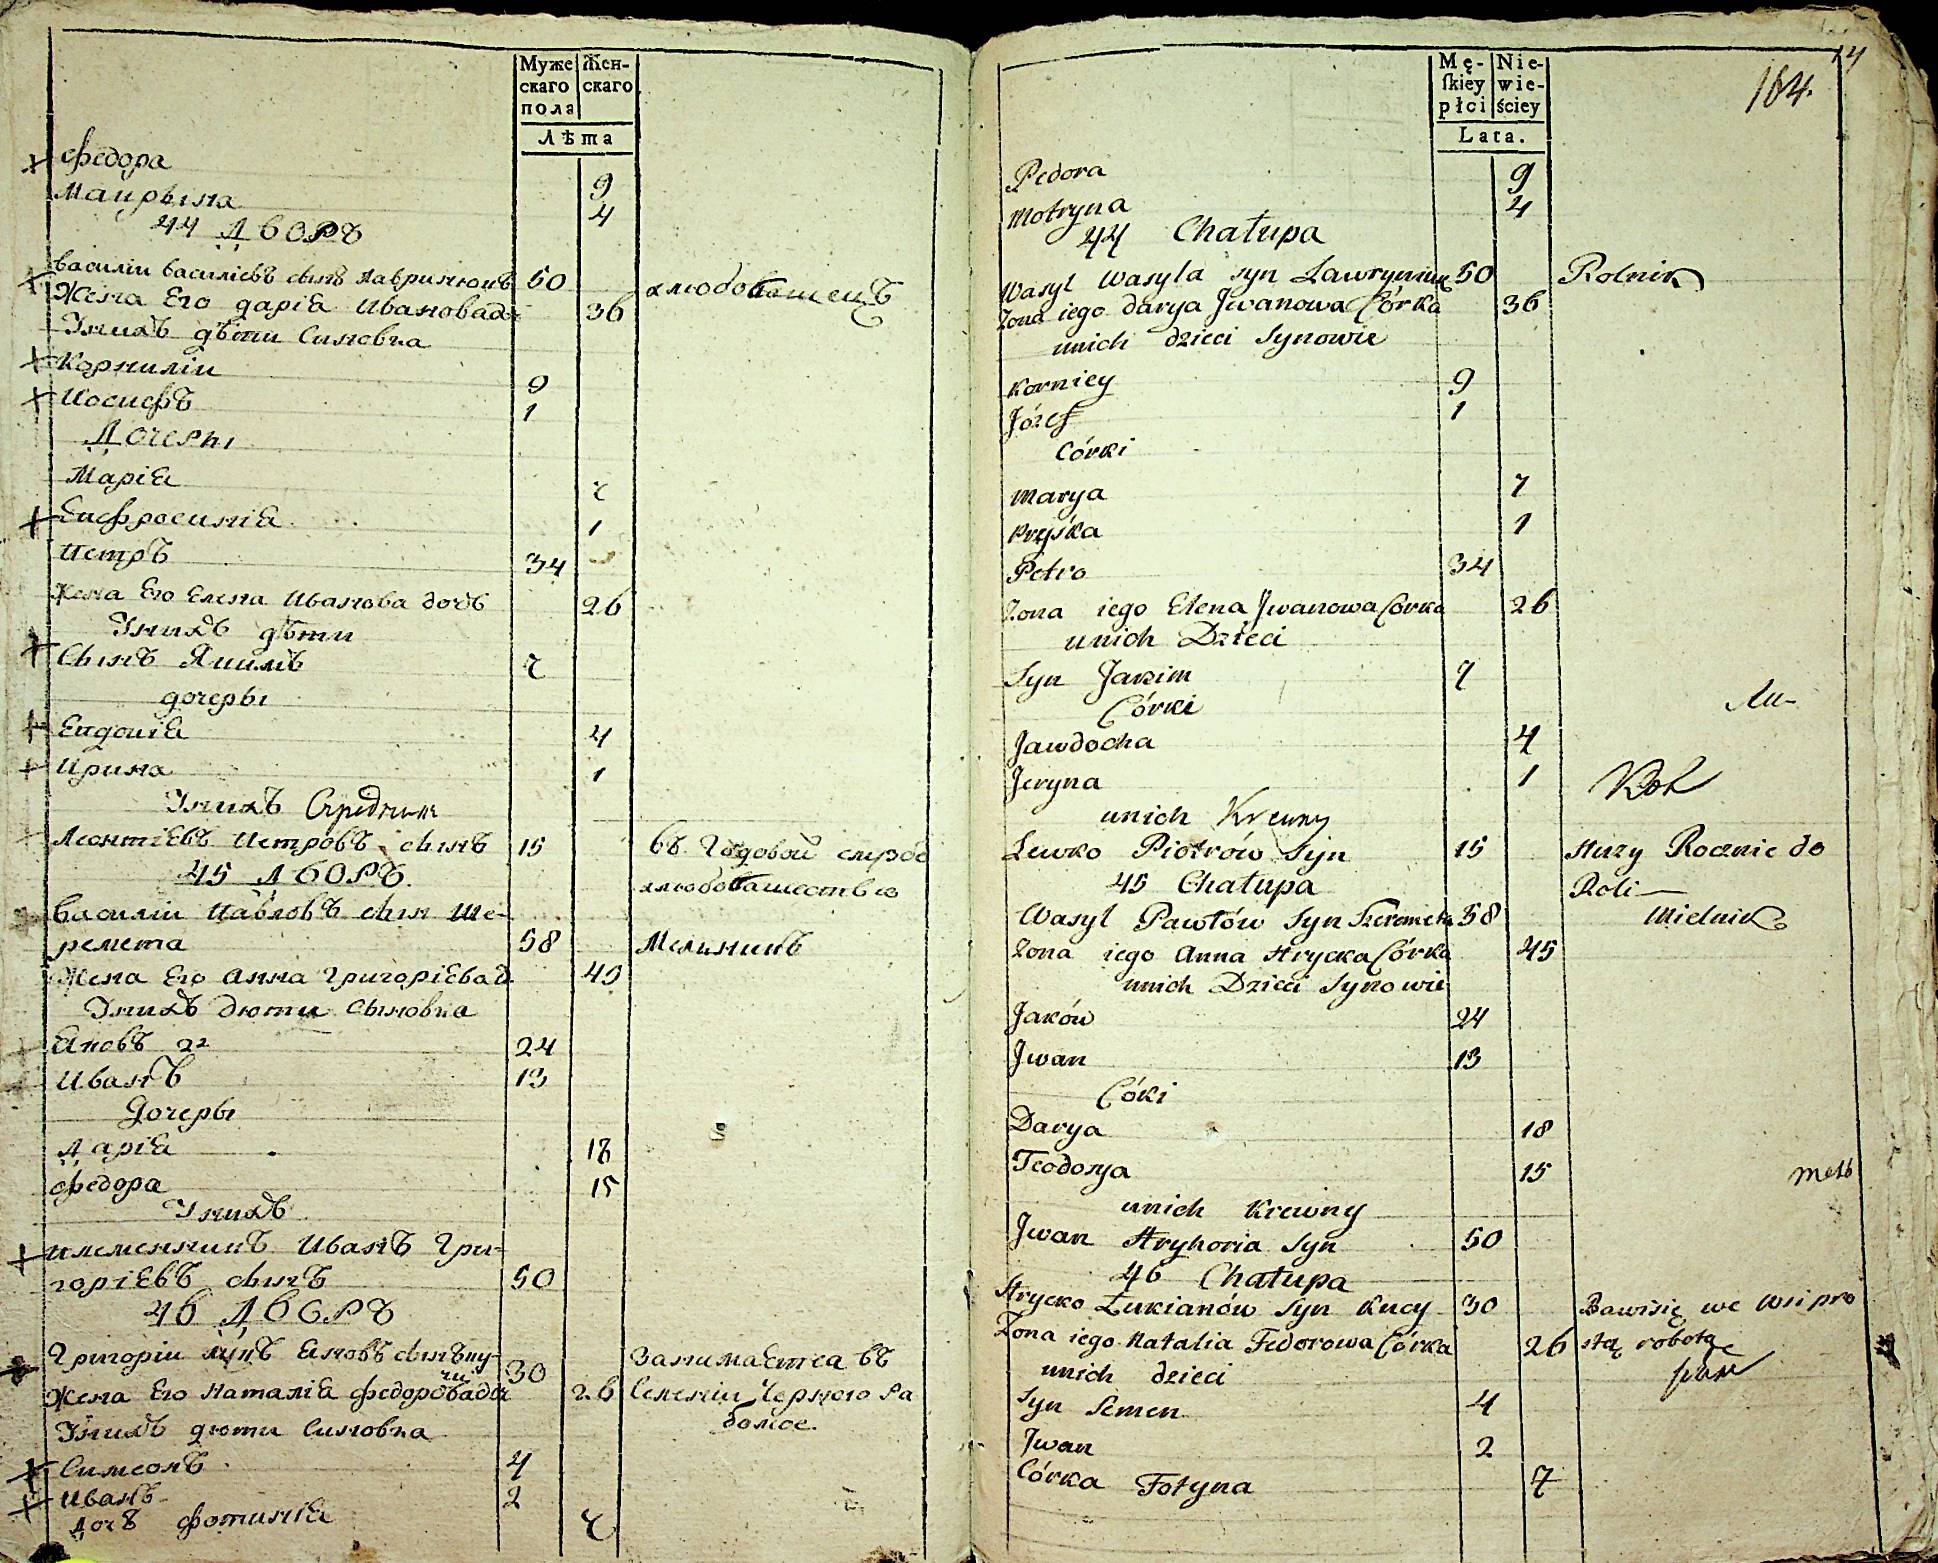 Муже
скаго
пола
Жен-
скаго
Лѣта
Федора 9
Матрына 4
44 ДВОРЪ
Василіи Василіевъ сынъ Лавринюкъ 50 хлюбопашецъ
Жена Его дарія Ивановад. 36
Ўнихъ дѣти Синовка
Корниліи 9
Иосифъ 1
Дочеры
Марія 7
Евфросинія 1
Петръ 34
Жена Его Елена Иванова дочь 26
Ўнихъ дѣти
Сынъ Якимъ 7
дочеры
Евдокія 4
Ирина 1
Ўнихъ
Леонтіевъ Петровъ сынъ 15 въ Годовой служб
45 ДВОРЪ хлюбопашествю
Василіи Павловъ сын Ше-
ремета 58 Мельникъ
Жена Его Анна Григоріевад. 45
Ўнихъ дюти Сыновка
Яковъ 24
Иванъ 13
Дочеры
Дарія 18
Федора 15
Ўнихъ
племенникъ Иванъ Гри-
горіевъ сынъ 50
46 ДВОРЪ
Григоріи лукъ Яновъ сынъ ку-
чи 30 Занимается въ
Жена Его Наталія Федоровадо 26 Селеніи Чорною ра
Ўнихъ дюти Синовка ботое.
Симеонъ 4
Иванъ 2
Дочъ Фотинія 7
14
164.
Mę-
skiey
płci
Nie-
wie-
ściey
Lata.
Pedora 9
Motryna 4
44 Chałupa
Wasyl Wasyla syn Ławryniuk 50 Rolnik
Żona iego Darya Jwanowa Córka 36
unich dzieci Synowie
Korniey 9
Józef 1
Córki
Marya 7
Pryśka 1
Petro 34
Żona iego Elena Jwanowa Córka 26
unich Dzieci
Syn Jakim 7
Córki
Jawdocha 4
Jeryna 1
unich Krewny
Lewko Piotrów Syn 15 służy Rocznie do
45 Chałupa Roli
Wasyl Pawłów Syn Szeremeta 58 Mielnik
Żona iego Anna Hrycka Córka 45
unich Dzieci Synowie
Jaków 24
Jwan 13
Córki
Darya 18
Teodozya 15
unich Krewny
Jwan Hryhoria Syn 50
46 Chałupa
Hrycko Łukianów Syn Kucy 30 Bawisię we Wsi pro
Żona iego Natalia Fedorowa Córka 26 stą robotą
unich dzieci
Syn Semen 4
Jwan 2
Córka Fotyna 7